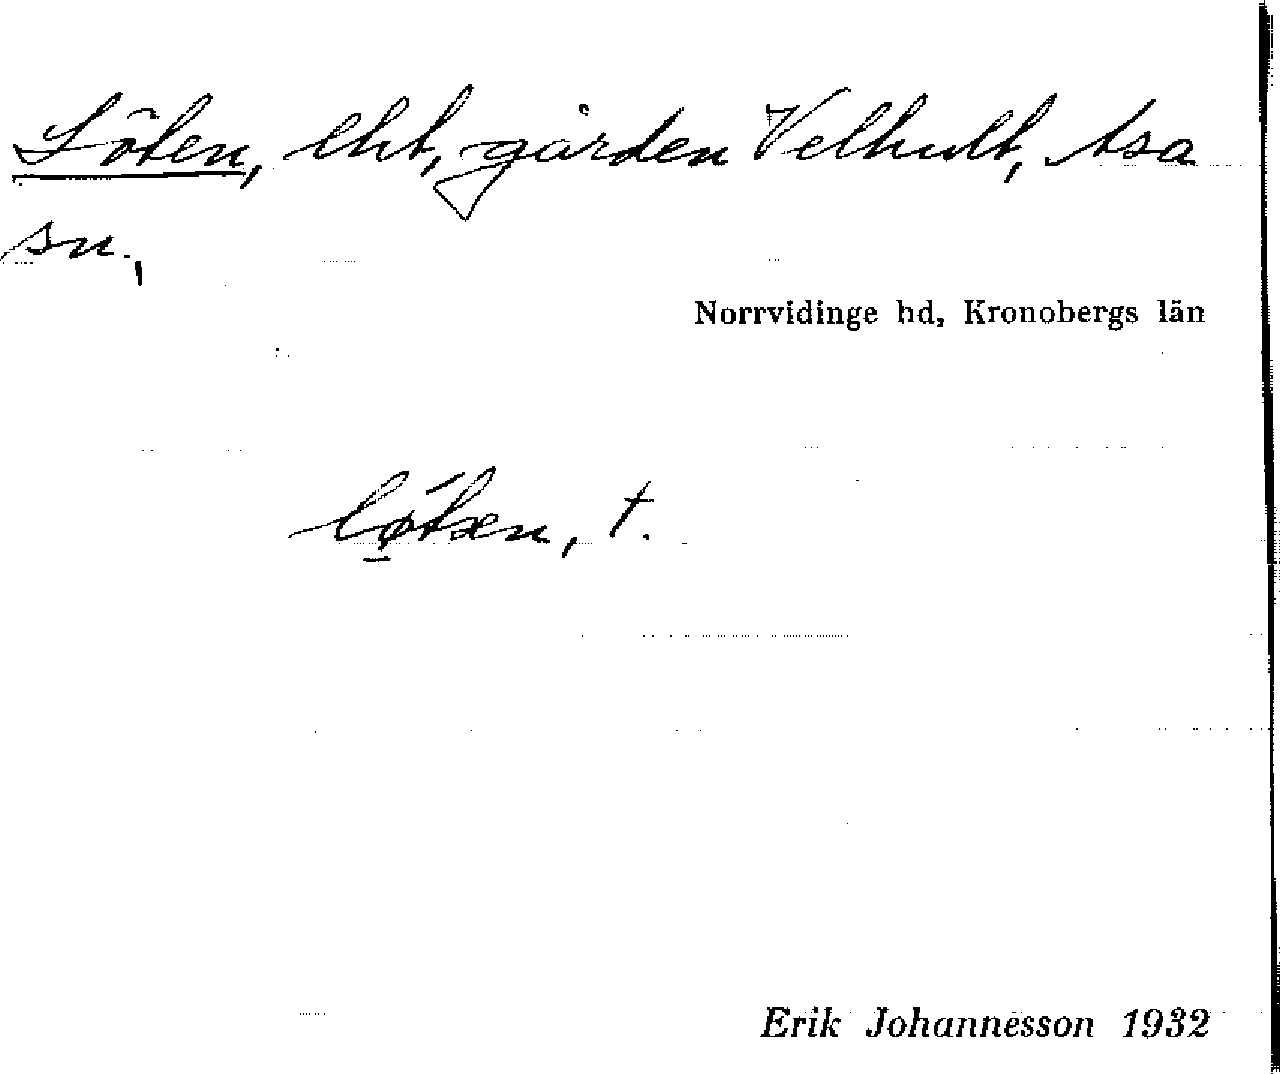 Löten, lht, gården Velhult, Asa
sn.,
Norrvidinge hd, Kronobergs län
løtæn, †.
Erik Johannesson 1932